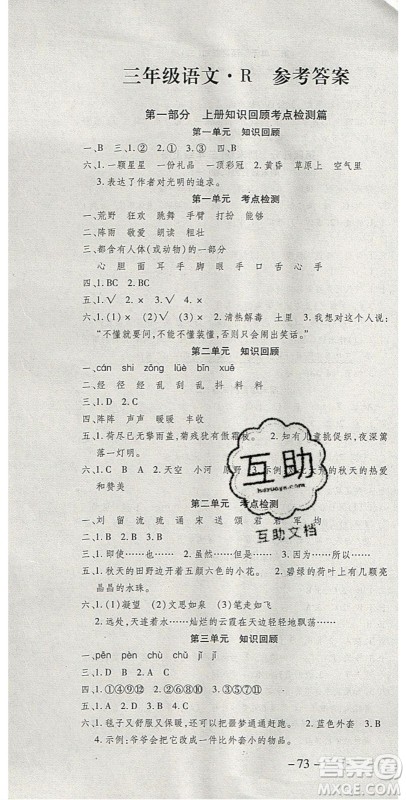 三年级语文·R 参考答案
第一部分 上册知识回顾考点检测篇
第一单元 知识回顾
一、B 三、1.① 2.② 四、1.① 2.② 五、②
六、1.一颗星星 一份礼品 一道彩虹 2.黄昏 草原上 空气里
3.表达了作者对光明的追求。
第一单元 考点检测
一、荒野 狂欢 跳舞 手臂 打扮 能够
二、阵雨 敬爱 朗读 枝杈
三、都含有人体(或动物)的一部分
心 胆 面 耳 手 脚 舌 头 眉 骨
四、1.BC 2.BC
五、1.√ 2.× 3.√ 4.×
六、1.(1)× (2)× (3)√ 2.清热解毒 3.示例:我想对这个人说:
“不懂就要问,不能不懂装懂,否则会闹出笑话。”
第二单元 知识回顾
一、cán shí zōng lüè bīn xuě
二、经 径 径 乱 刮 乱 抖 料 料
三、1.D 2.A 3.C
四、阵阵 声声 暖暖 丰收
五、1.荷尽已无擎雨盖,菊残犹有傲霜枝。 2.知有儿童挑促织,夜深篱
落一灯明。
六、1.C B A 2.天空 小河 原野 3.
和赞美
第二单元 考点检测
一、刘 留 流 疏 诵 宋 送 颂 君 君 军 均
二、1.D 2.C 3.A 4.B
三、1.即使……也…… 2.一边……一边…… 3.因为……所以……
五、1.秋天的田野边沐浴着阳光边翩翩起舞。 2.碧绿的荷叶上有几颗
晶晶的水珠。
六、1.(1)凝望 (2)文思如涌 (3)飘荡
2.远处,天边,灿烂的云霞在天边轻轻飘荡。
第三单元 知识回顾
一、1.pěn pèn chù chǔ jī jǐ
二、1.①④⑨② 2.⑥⑧⑩⑫ 3.③⑤⑦⑪
五、1.A 2.D 3.C
六、1.毯子又舒服又保暖,还可以把噩梦通通赶跑。 2.蓝色外套
4.示例:爷爷把它改成了一件出去旅行穿的外套。
-73-
互助
huzuoye.com
互助文档